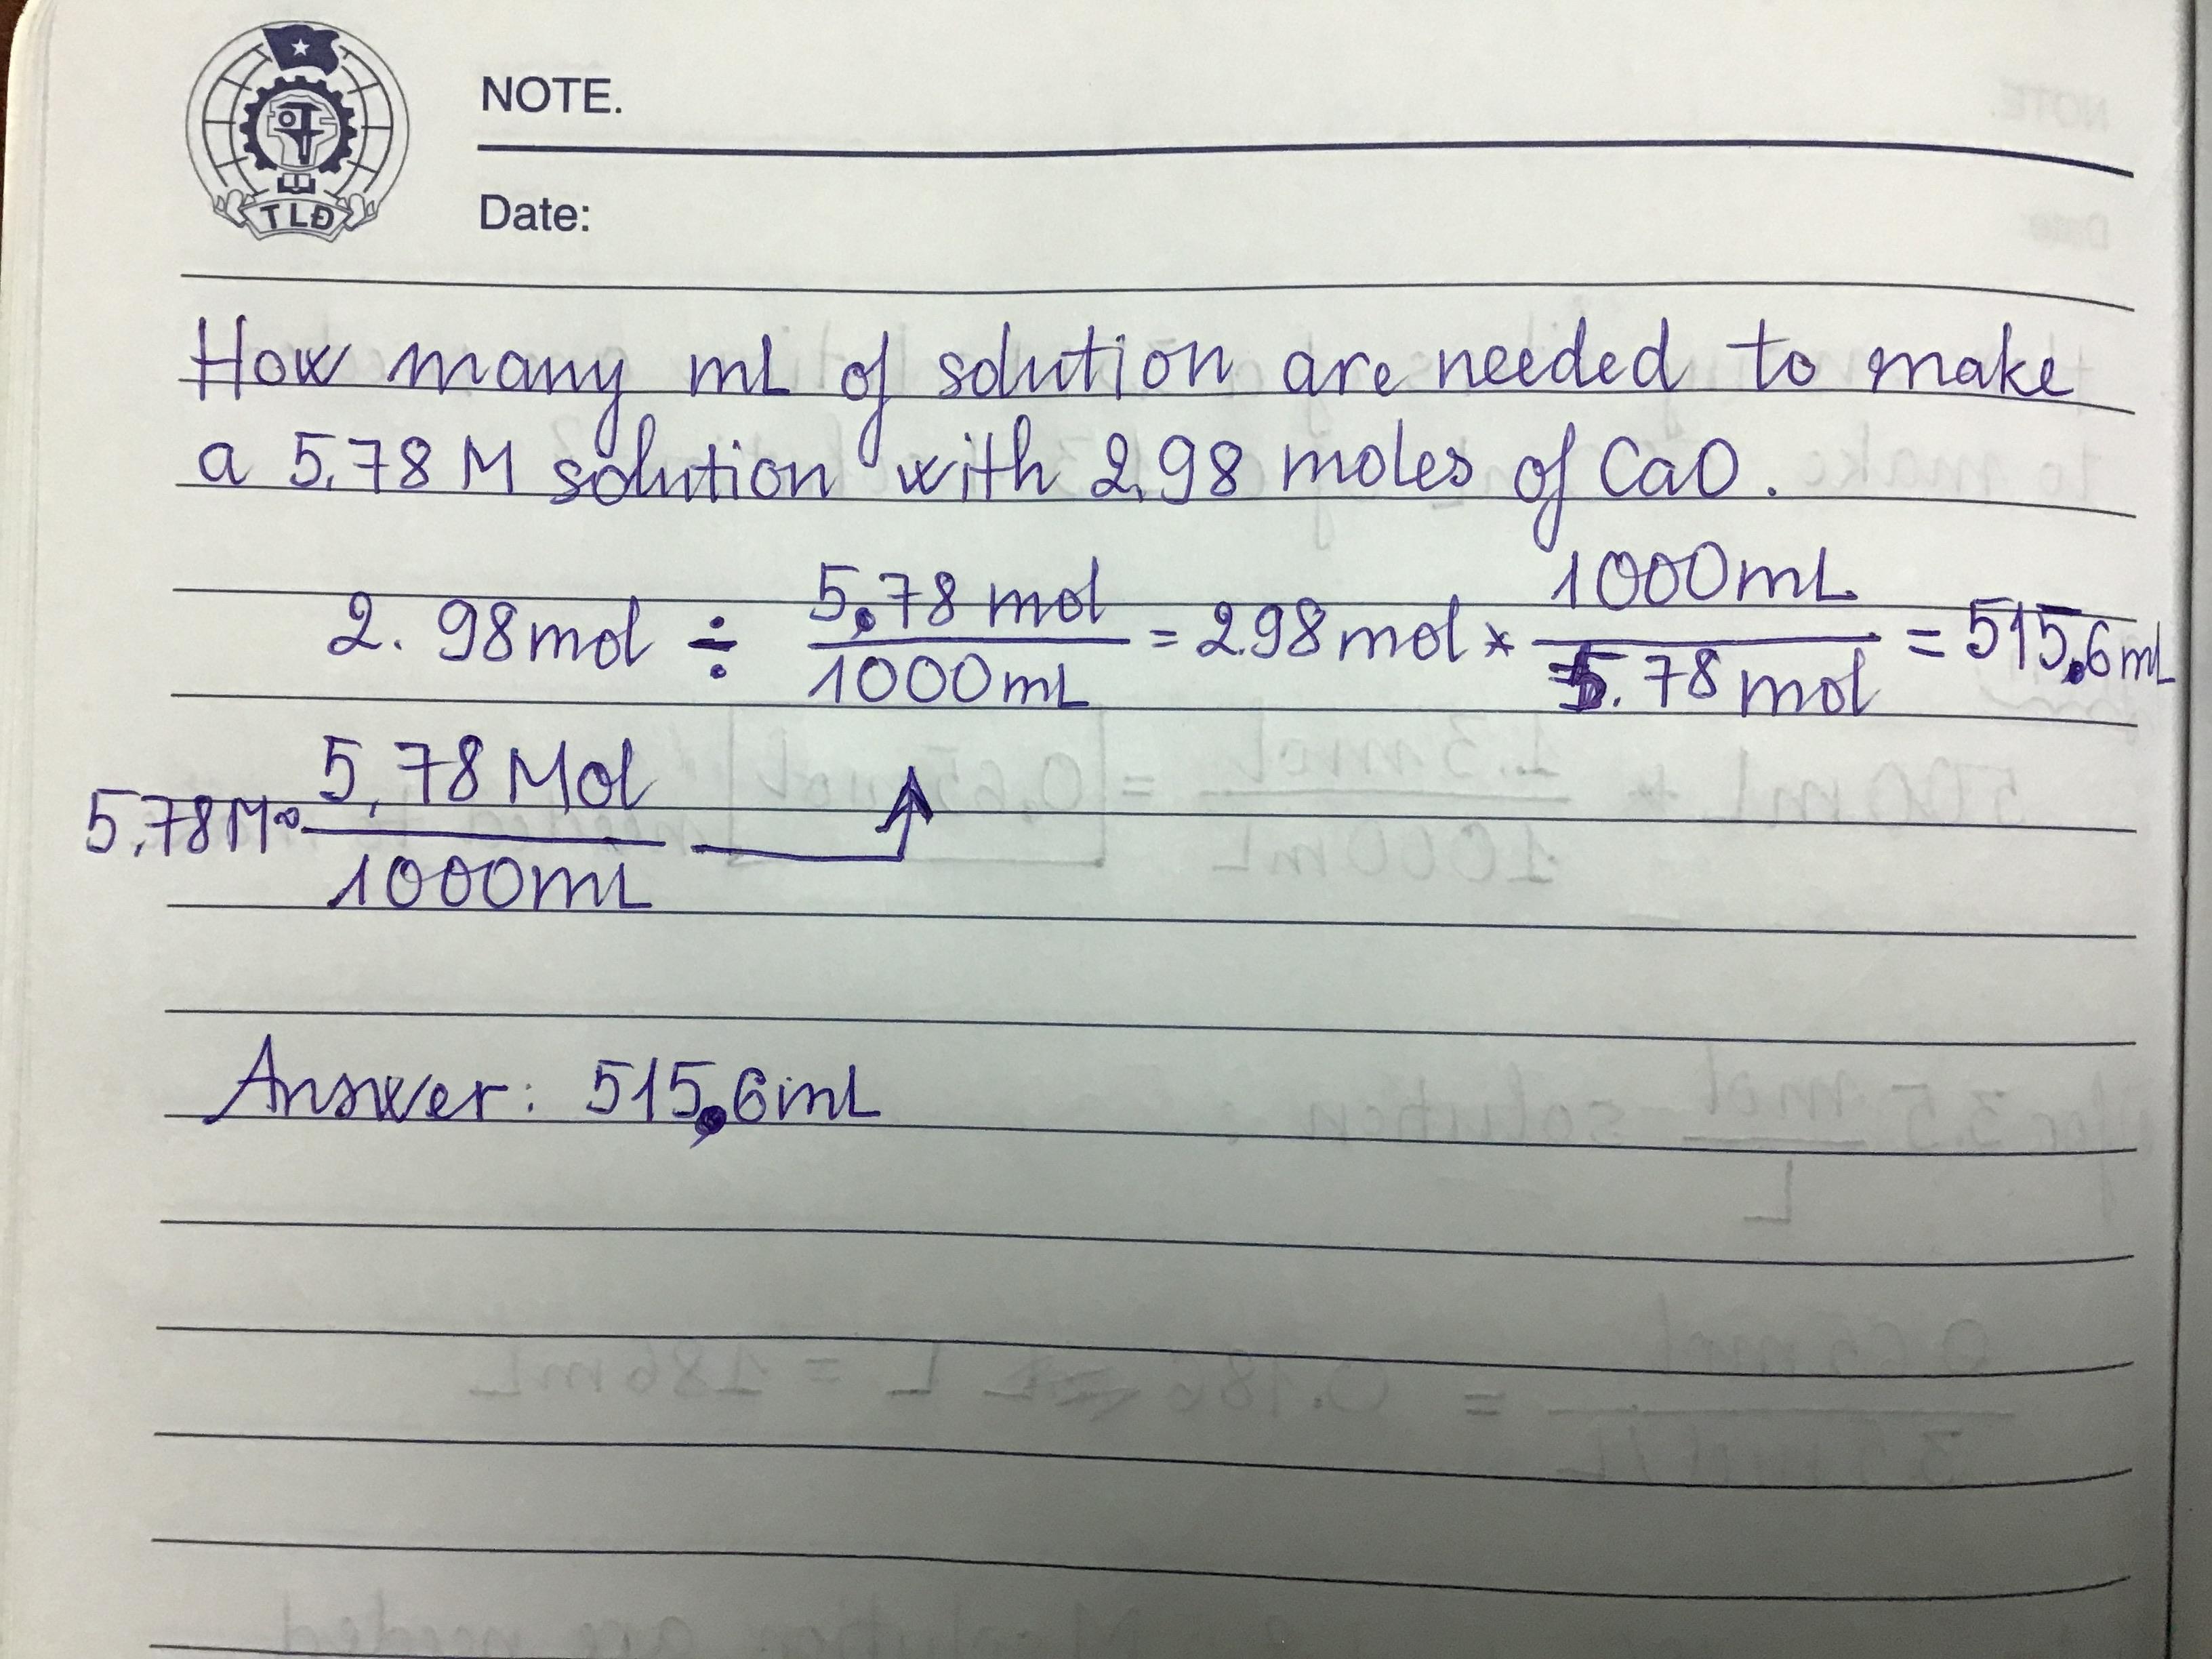 TLĐ
NOTE.
Date:
How many mL of solution are needed to make
a 5.78 M solution with 2.98 moles of CaO.
2.98 mol ÷ 5.78 mol / 1000 mL = 2.98 mol * 1000 mL / 5.78 mol = 515.6 mL
5.78 M = 5.78 Mol / 1000 mL
Answer: 515.6 mL